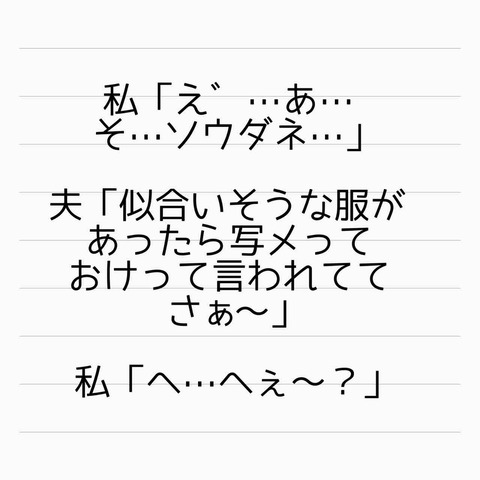 私「え゛…あ…
そ…ソウダネ…」
夫「似合いそうな服が
あったら写メって
おけって言われてて
さぁ〜」
私「へ…へぇ〜？」